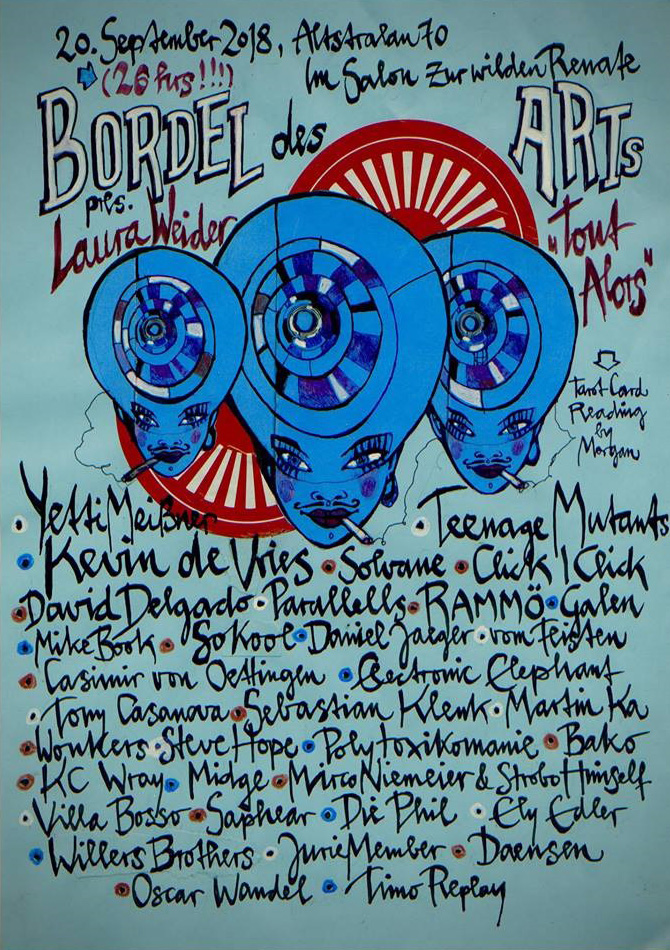 20. September 2018, Altstralau 70
(26 hrs!!!) Im Salon zur wilden Renate
BORDEL des ARTs
prés.
Laura Weider
"Tout
Alors"
Tarot Card
Reading
by
Morgan
Yetti Meißner • Teenage Mutants
• Kevin de Vries • Solvane • Click | Click
• David Delgado • Parallells • RAMMÖ • Galen
• Mike Book • So Kool • Daniel Jaeger • vom Feisten
• Casimir von Oettingen • Electronic Elephant
• Tony Casanova • Sebastian Klenk • Martin Ka
• Wonkers • Steve Hope • Polytoxikomanie • Bako
• KC Wray • Midge • Mirco Niemeier & Strobo Himself
• Villa Bosso • Saphear • Die Phil • Ely Edler
• Willers Brothers • Jurie Member • Daensen
• Oscar Wandel • Timo Replay